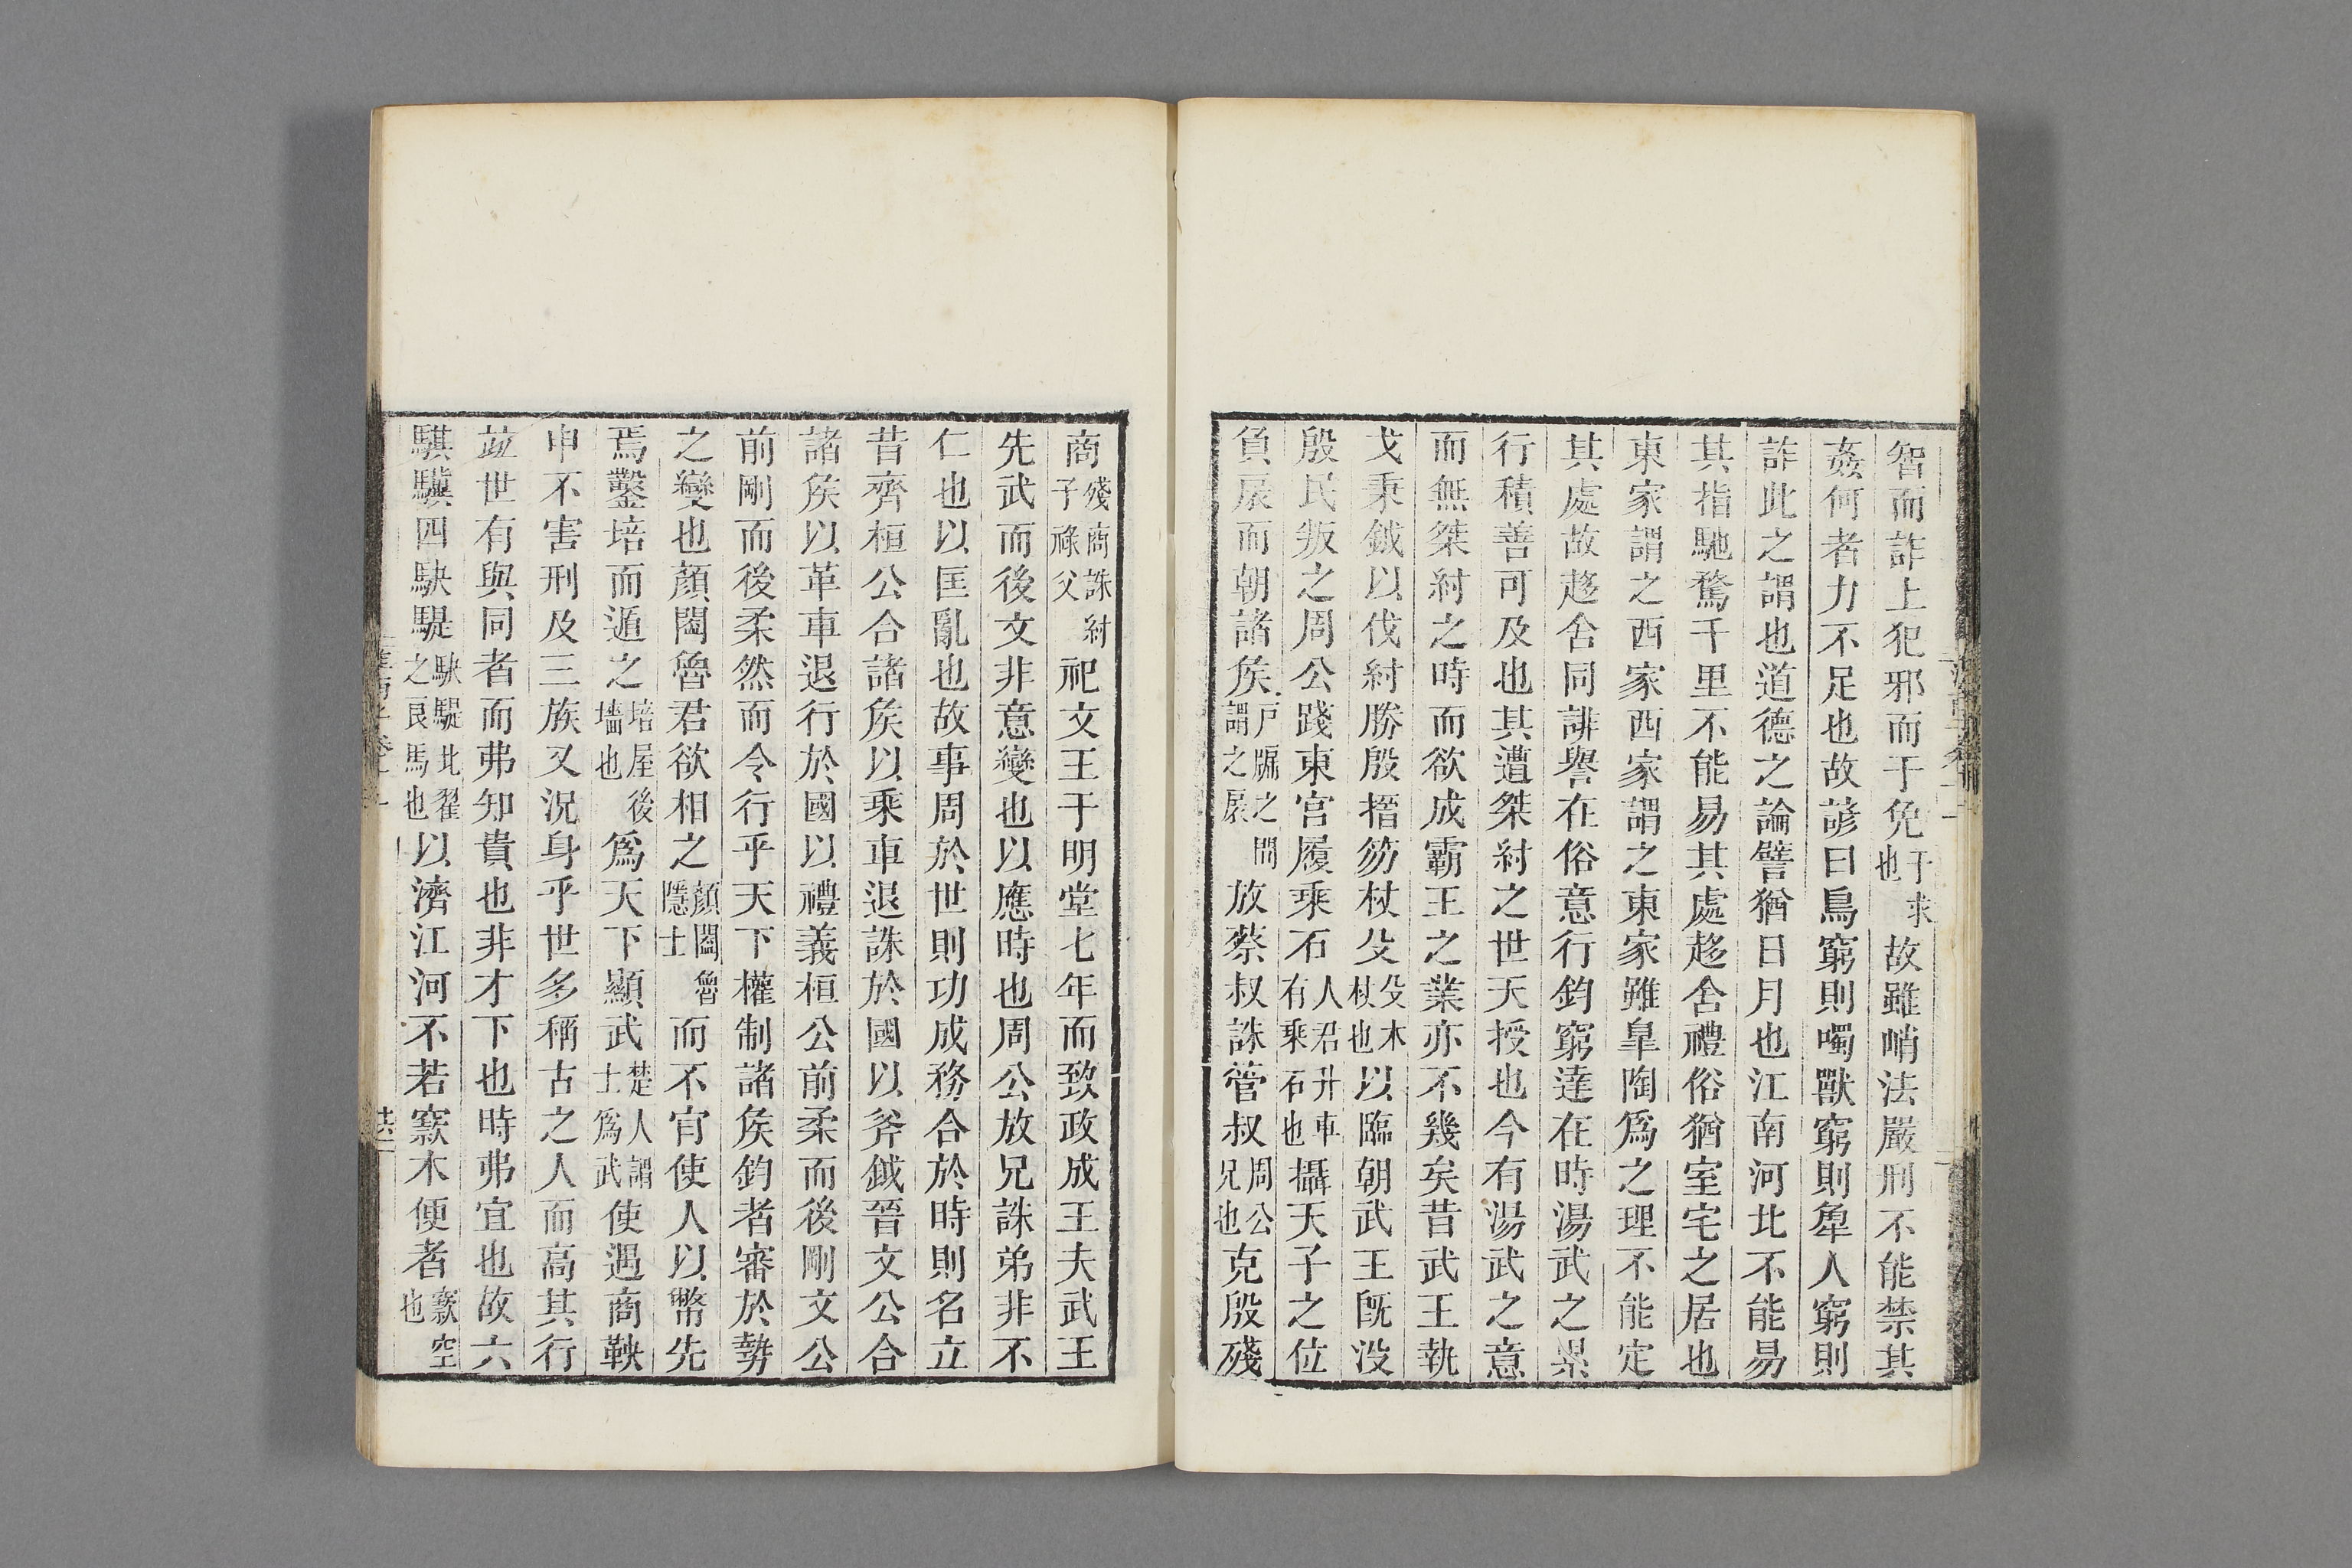 智而詐上犯邪而干免干求也故雖峭法嚴刑不能禁其
姦何者力不足也故諺曰鳥窮則噣獸窮則𢍆人窮則
詐此之謂也道德之論譬猶日月也江南河北不能易
其指馳騖千里不能易其處趍舍禮俗猶室宅之居也
東家謂之西家西家謂之東家雖臯陶爲之理不能定
其處故趍舍同誹譽在俗意行鈞窮達在時湯武之累
行積善可及也其遭桀紂之世天授也今有湯武之意
而無桀紂之時而欲成霸王之業亦不幾矣昔武王執
戈秉鉞以伐紂勝殷搢笏杖殳殳木杖也以臨朝武王旣没
殷民叛之周公踐東宮履乘石人君升車有乘石也攝天子之位
負扆而朝諸矦戸牖之間謂之扆放蔡叔誅管叔周公兄也克殷殘
商殘商誅紂子祿父祀文王于明堂七年而致政成王夫武王
先武而後文非意變也以應時也周公放兄誅弟非不
仁也以匡亂也故事周於世則功成務合於時則名立
昔齊桓公合諸矦以乘車退誅於國以斧鉞晉文公合
諸矦以革車退行於國以禮義桓公前柔而後剛文公
前剛而後柔然而令行乎天下權制諸矦鈞者審於勢
之變也顔闔魯君欲相之顏闔魯隱士而不肎使人以幣先
焉鑿培而遁之培屋後墻也爲天下顯武楚人謂士爲武使遇商鞅
申不害刑及三族又況身乎世多稱古之人而高其行
竝世有與同者而弗知貴也非才下也時弗宜也故六
騏驥四駃騠駃騠北翟之良馬也以濟江河不若窾木便者窾空也